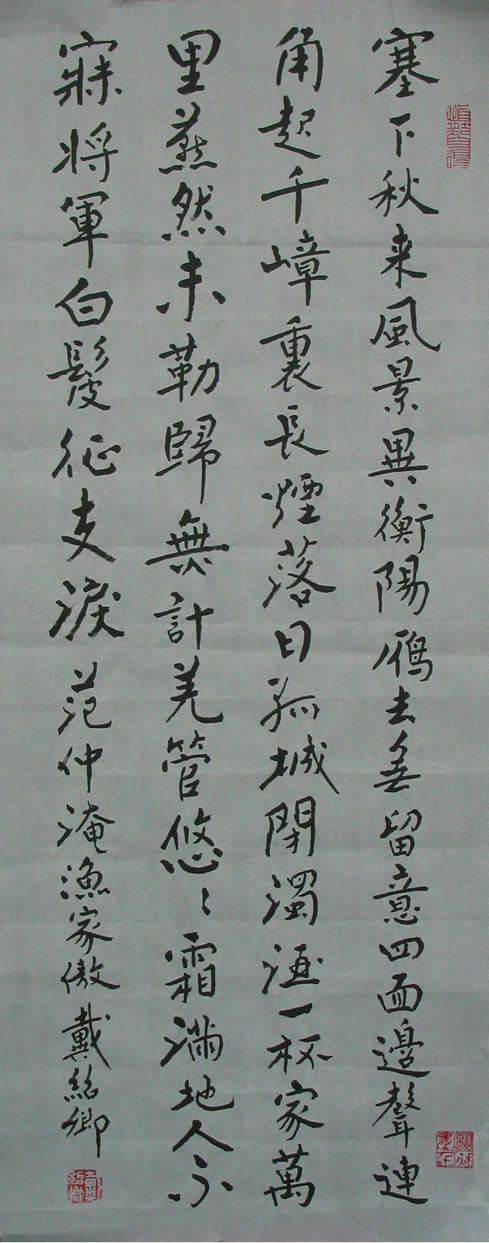 塞下秋来風景異衡陽雁去無留意四面邊聲連
角起千嶂裏長煙落日孤城閉濁酒一杯家萬
里燕然未勒歸無計羌管悠〻霜滿地人不
寐將軍白髮征夫淚 范仲淹漁家傲戴紹卿